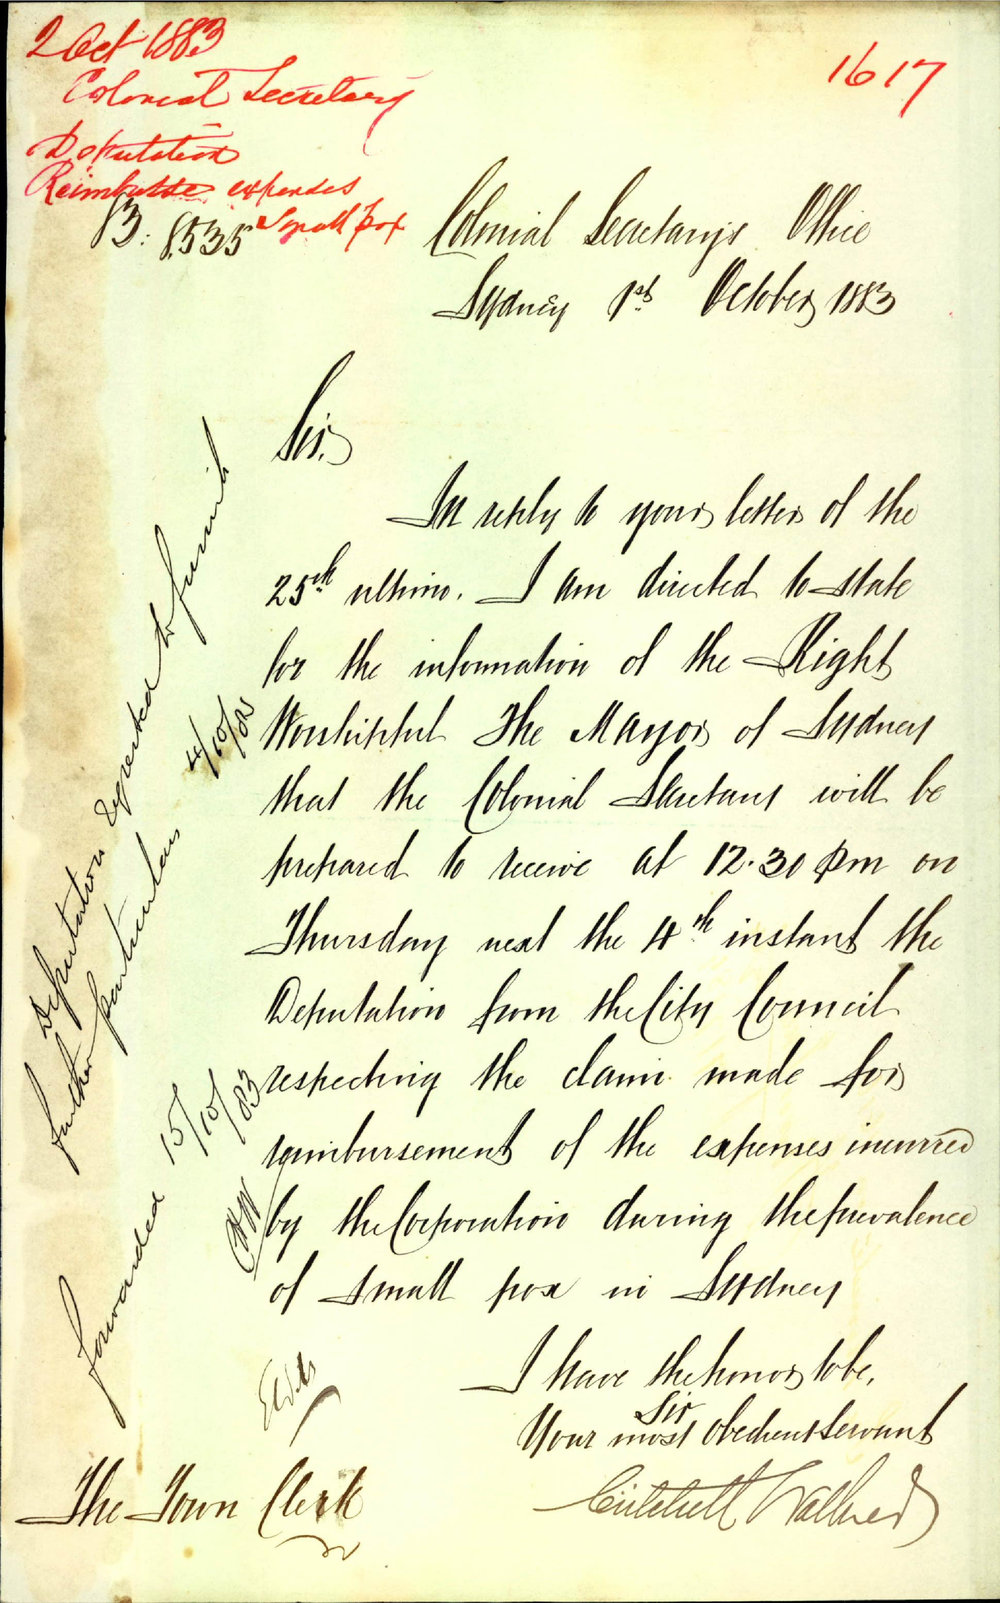 2 Oct 1883
Colonial Secretary
Deputation
Reimburse expenses
Small Pox
1617
83. 8535
Colonial Secretary's Office
Sydney 1st October 1883
Sir,
In reply to your letter of the
25th ultimo. I am directed to state
for the information of the Right
Worshipful The Mayor of Sydney
that the Colonial Secretary will be
prepared to receive at 12.30 pm on
Thursday next the 4th instant the
Deputation from the City Council
respecting the claim made for
reimbursement of the expenses incurred
by the Corporation during the prevalence
of small pox in Sydney
I have the honor to be,
Sir
Your most obedient servant
Critchett Walker
The Town Clerk
Deputation requested to furnish
further particulars 4/10/83
forwarded 15/10/83